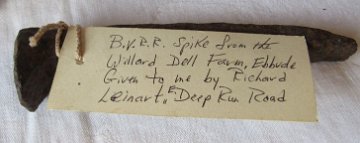 B.V.R.R. Spike from the
Willard Dell Farm, Ebbvale
Given to me by Richard
Leinart, Deep Run Road